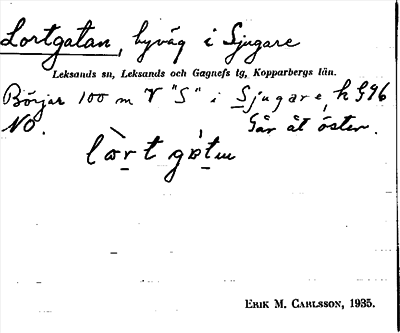 Lortgatan, byväg i Sjugare
Leksands sn, Leksands och Gagnefs tg, Kopparbergs län.
Börjar 100 m V "S" i Sjugare, k 996
NO. Går åt öster.
lòrt gátɯ
ERIK M. CARLSSON, 1935.